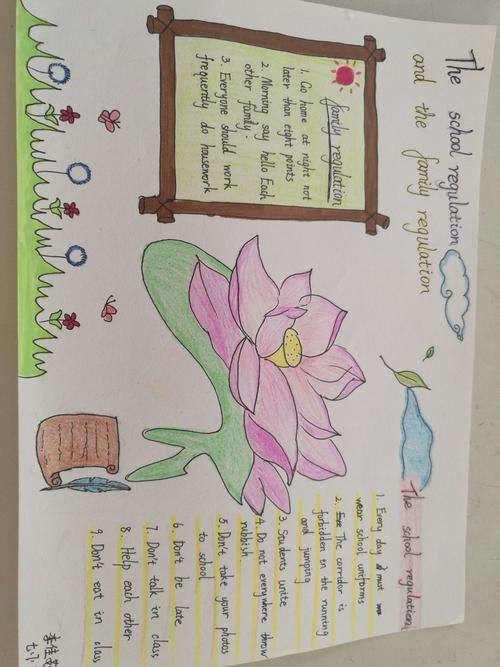 The school regulation
and the family regulation
family regulation
1. Go home at night not
later than eight points
2. Morning say hello Each
other family.
3. Everyone should work
frequently do housework
The school regulation
1. Every day must
wear school uniforms
2. The corridor is
forbidden in the running
and jumping
3. Students unite
4. Do not everywhere throw
rubbish.
5. Don't take your photos
to school
6. Don't be late
7. Don't talk in class
8. Help each other
9. Don't eat in class